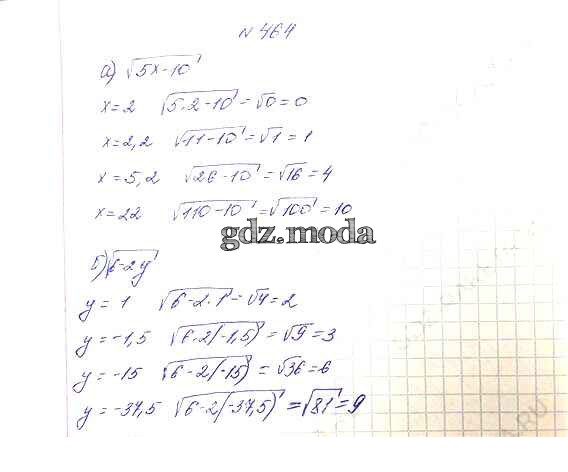 № 464
а) √5x-10
x=2 √5·2-10 = √0 = 0
x=2,2 √11-10 = √1 = 1
x=5,2 √26-10 = √16 = 4
x=22 √110-10 = √100 = 10
gdz.moda
б) √6-2y
y = 1 √6-2·1 = √4 = 2
y = -1,5 √6-2(-1,5) = √9 = 3
y = -15 √6-2(-15) = √36 = 6
y = -37,5 √6-2(-37,5) = √81 = 9